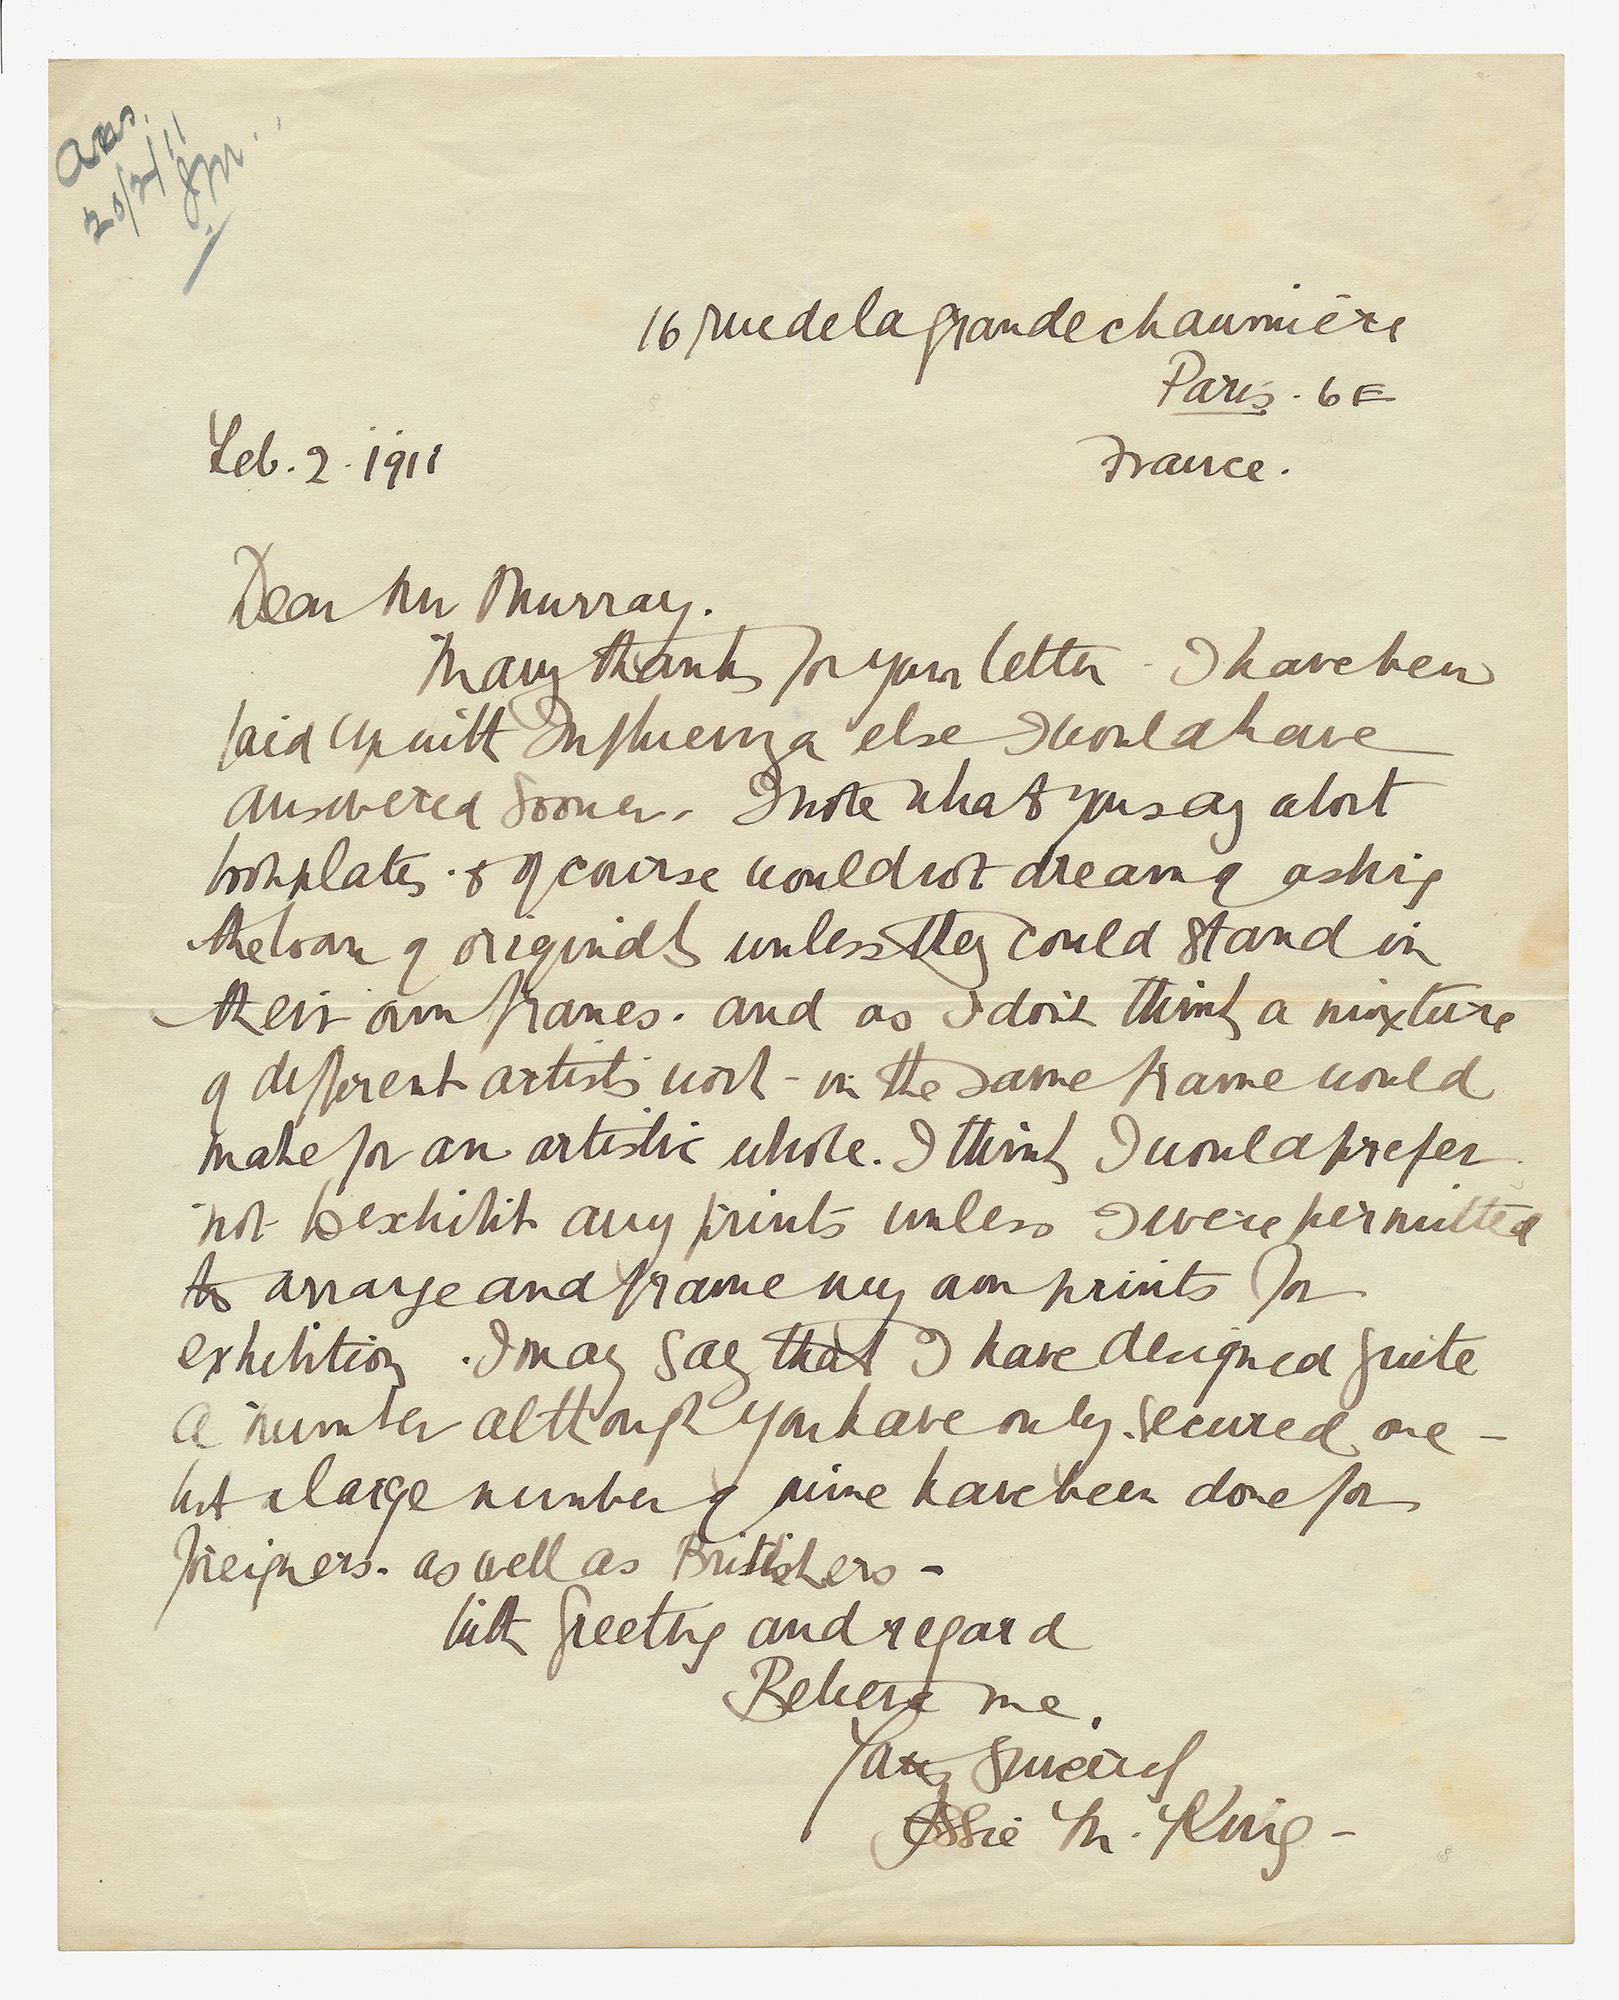 Ans.
20/2/11
JM.
16 rue de la grande chaumière
Paris. 6E
France.
Feb. 2. 1911
Dear Mr Murray.
Many thanks for your letter - I have been
laid up with Influenza else I would have
answered sooner. I note what you say about
bookplates. & of course would not dream of asking
the loan of originals unless they could stand in
their own frames. and as I don't think a mixture
of different artists work - in the same frame would
make for an artistic whole. I think I would prefer
not to exhibit any prints unless I were permitted
to arrange and frame my own prints for
exhibition. I may say that I have designed quite
a number although you have only secured one -
but a large number of mine have been done for
foreigners. as well as Britishers -
With greeting and regard
Believe me,
Yours sincerely
Jessie M. King -